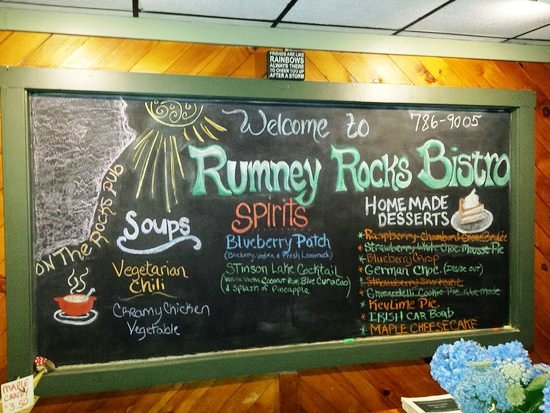 FRIENDS ARE LIKE
RAINBOWS
ALWAYS THERE
TO CHEER YOU UP
AFTER A STORM
Welcome to
786-9005
Rumney Rocks Bistro
ON THE ROCKS PUB
Soups
Vegetarian
Chili
Creamy Chicken
Vegetable
Spirits
Blueberry Patch
(Blueberry Vodka & Fresh Lemonade)
Stinson Lake Cocktail
Vodka, Coconut Rum, Blue Curacao
& Splash of Pineapple
HOMEMADE
DESSERTS
* Raspberry Chambord Creme Brulee
* Strawberry White Choc. Mousse Pie
* Blueberry Crisp
* German Choc.
* Strawberry Shortcake
* Ghirardelli Cookie Pie
* Key Lime Pie
* IRISH CAR Bomb
* MAPLE CHEESECAKE
MAPLE
CANDY
$3.50